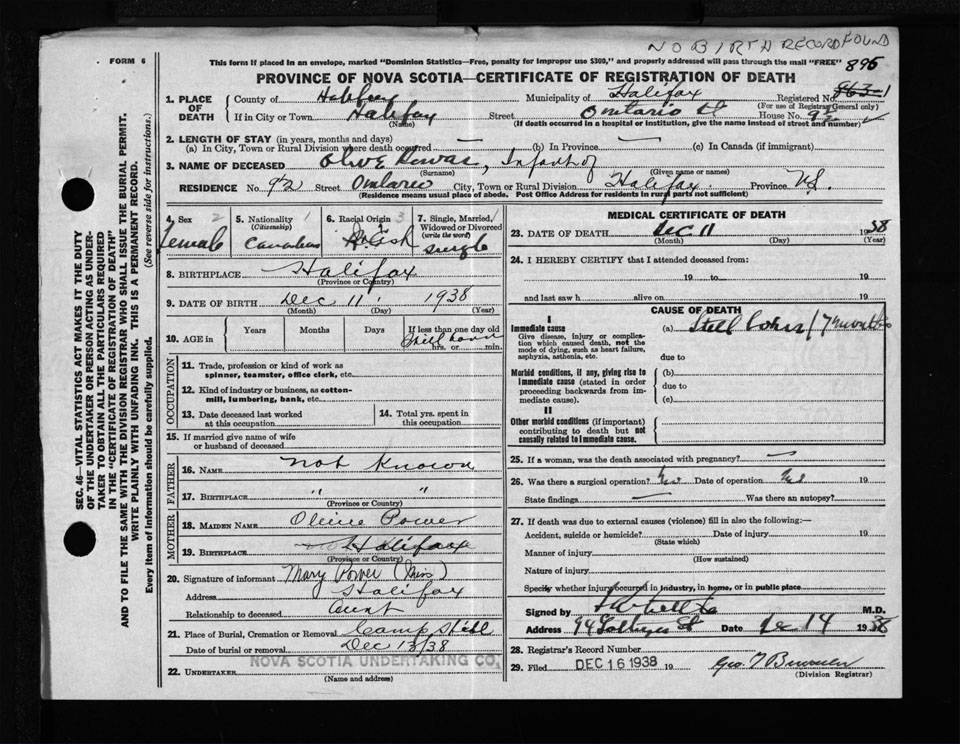 NO BIRTH RECORD FOUND
FORM 6
This form if placed in an envelope, marked "Dominion Statistics—Free, penalty for improper use $300," and properly addressed will pass through the mail "FREE" 895
PROVINCE OF NOVA SCOTIA—CERTIFICATE OF REGISTRATION OF DEATH
1. PLACE OF DEATH
County of Halifax Municipality of Halifax Registered No. 863-1
(For use of Registrar General only)
If in City or Town Halifax Street Ontario St House No. 92
(Name) (If death occurred in a hospital or institution, give the name instead of street and number)
2. LENGTH OF STAY (in years, months and days)
(a) In City, Town or Rural Division where death occurred — (b) In Province — (c) In Canada (if immigrant)
3. NAME OF DECEASED Olive Power, Infant of
(Surname) (Given name or names)
RESIDENCE No. 92 Street Ontario City, Town or Rural Division Halifax Province N.S.
(Residence means usual place of abode. Post Office Address for residents in rural parts not sufficient)
4. Sex 2 Female
5. Nationality 1 (Citizenship) Canadian
6. Racial Origin 3
7. Single, Married, Widowed or Divorced (write the word) 1 single
8. BIRTHPLACE Halifax
(Province or Country)
9. DATE OF BIRTH Dec 11, 1938
(Month) (Day) (Year)
10. AGE in Years Months Days If less than one day old
Still born
hrs. or min.
OCCUPATION
11. Trade, profession or kind of work as spinner, teamster, office clerk, etc.
12. Kind of industry or business, as cotton-mill, lumbering, bank, etc.
13. Date deceased last worked at this occupation
14. Total yrs. spent in this occupation
15. If married give name of wife or husband of deceased
FATHER
16. NAME not known
17. BIRTHPLACE " "
(Province or Country)
MOTHER
18. MAIDEN NAME Olive Power
19. BIRTHPLACE Halifax
(Province or Country)
20. Signature of informant Mary Power (Miss)
Address Halifax
Relationship to deceased aunt
21. Place of Burial, Cremation or Removal Camp Hill
Date of burial or removal Dec 13/38
NOVA SCOTIA UNDERTAKING CO.
22. UNDERTAKER
(Name and address)
MEDICAL CERTIFICATE OF DEATH
23. DATE OF DEATH Dec 11 1938
(Month) (Day) (Year)
24. I HEREBY CERTIFY that I attended deceased from:
19 to 19
and last saw h alive on 19
CAUSE OF DEATH
I
Immediate cause (a) Still born / 7 months
Give disease, injury or complication which caused death, not the mode of dying, such as heart failure, asphyxia, asthenia, etc.
due to
Morbid conditions, if any, giving rise to immediate cause (stated in order proceeding backwards from immediate cause).
(b)
due to
(c)
II
Other morbid conditions (if important) contributing to death but not causally related to immediate cause.
25. If a woman, was the death associated with pregnancy? —
26. Was there a surgical operation? No Date of operation 19
State findings — Was there an autopsy?
27. If death was due to external causes (violence) fill in also the following:—
Accident, suicide or homicide? Date of injury 19
(State which)
Manner of injury
(How sustained)
Nature of injury
Specify whether injury occurred in industry, in home, or in public place
Signed by M.D.
Address 94 St Date Dec 14 1938
28. Registrar's Record Number
29. Filed DEC 16 1938 19 Geo. T
(Division Registrar)
SEC. 46—VITAL STATISTICS ACT MAKES IT THE DUTY
OF THE UNDERTAKER OR PERSON ACTING AS UNDER-
TAKER TO OBTAIN ALL THE PARTICULARS REQUIRED
IN THE "CERTIFICATE OF REGISTRATION OF DEATH"
AND TO FILE THE SAME WITH THE DIVISION REGISTRAR WHO SHALL ISSUE THE BURIAL PERMIT.
WRITE PLAINLY WITH UNFADING INK. THIS IS A PERMANENT RECORD.
Every item of information should be carefully supplied. (See reverse side for instructions.)